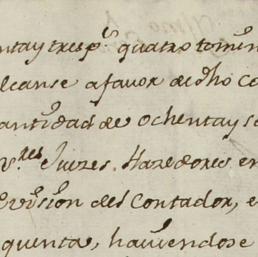 entay tres p.s quatro tomin
alcanse afavor de dho Co
cantidad de ochentay se
S.res Juezes Hazedores en
Revission del Contador, e
quenta, haviendose